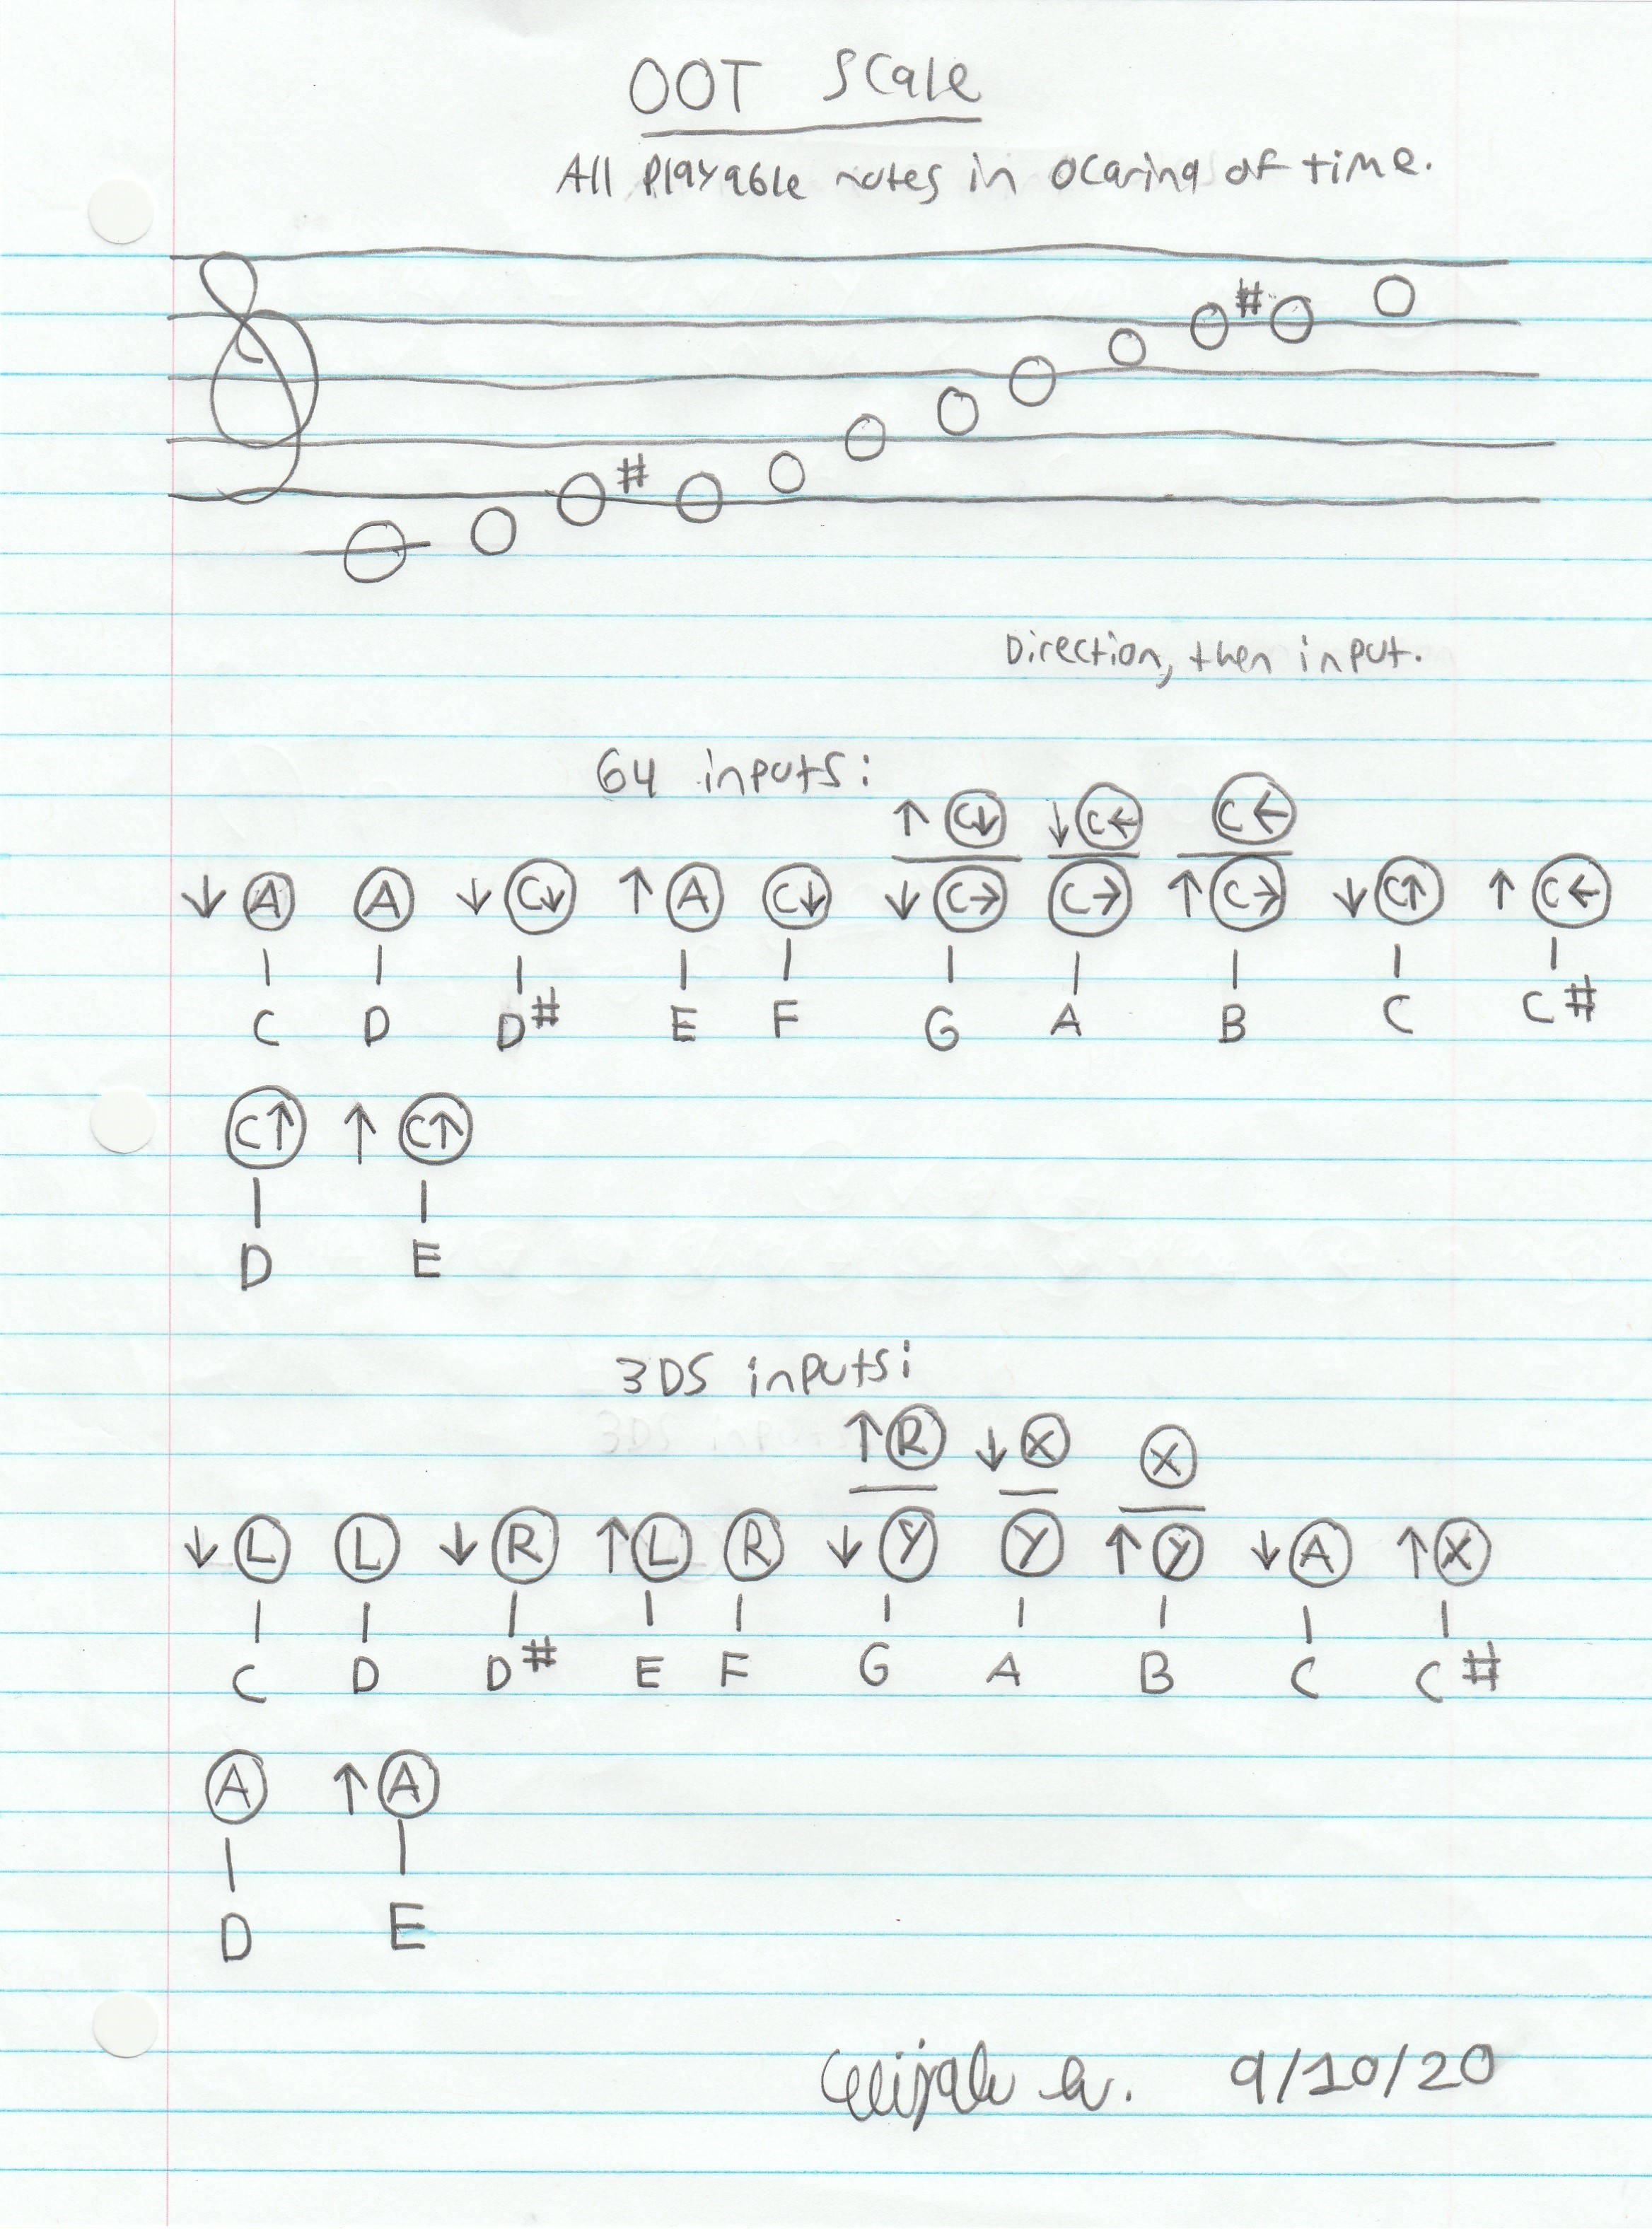 OOT Scale
All Playable notes in Ocarina of time.
# #
Direction, then input.
64 inputs:
↑ C↓ ↓ C← C←
↓ A A ↓ C↓ ↑ A C↓ ↓ C→ C→ ↑ C→ ↓ C↑ ↑ C←
C D D# E F G A B C C#
C↑ ↑ C↑
D E
3DS inputs:
↑ R ↓ X X
↓ L L ↓ R ↑ L R ↓ Y Y ↑ Y ↓ A ↑ X
C D D# E F G A B C C#
A ↑ A
D E
9/10/20